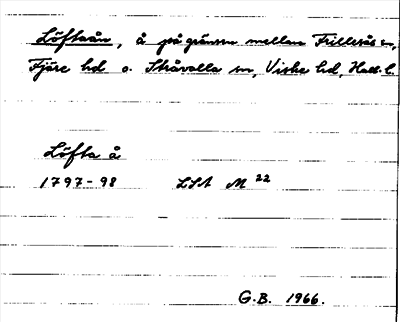 Löftaån, å på gränsen mellan Frillesås sn,
Fjäre hd o. Stråvalla sn, Viske hd, Hall. l.
Löfta å
1797-98 LSA M 22
G.B. 1966.